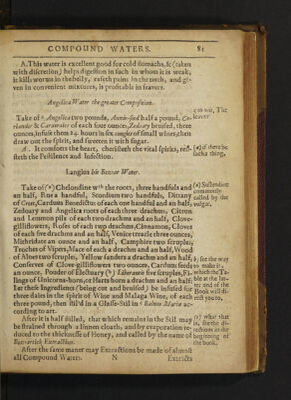 COMPOUND WATERS. 81
A. This water is excellent good for cold stomachs, & (taken
with discretion) helps digestion in such in whom it is weak,
it kills worms in the belly, easeth pains in the teeth, and gi-
ven in convenient mixtures, is profitable in feavers.
Angelica Water the greater Composition.
Take of Angelica two pounds, Annis-seed half a pound, Co-
riander & Caraway of each four ounces, Zedoary bruised, three
ounces, infuse them 24 hours in six congies of small wine, then
draw out the spirit, and sweeten it with sugar.
A. It comforts the heart, cherisheth the vital spirits, resi-
steth the Pestilence and Infection.
(a) if there be
such a thing,
Langius his Bezoar Water.
Take of (a) Chelondine with the roots, three handfuls and
an half, Rue a handful, Scordium two handfuls, Dittany
of Creet, Carduus Benedictus of each one handful and an half,
Zedoary and Angelica roots of each three drachms, Citron
and Lemmon pills of each two drachms and an half, Clove-
gilliflowers, Roses of each two drachms, Cinnamon, Cloves
of each five drachms and an half, Venice treacle three ounces,
Mithridate an ounce and an half, Camphire two scruples,
Troches of Vipers, Mace of each a drachm and an half, Wood
of Aloes two scruples, Yellow sanders a drachm and an half,
Conserves of Clove-gilliflowers two ounces, Carduus seeds
an ounce, Pouder of Electuary (b) Liberantis five scruples, Fi-
lings of Unicorns-horn, or Harts horn a drachm and an half:
Let these Ingredients (being cut and bruised) be infused for
three daies in the spirit of Wine and Malaga Wine, of each
three pound, then still'd in a Glasse-Still in Balneo Mariæ ac-
cording to art.
After it is half stilled, that which remains in the Still may
be strained through a linnen cloath, and by evaporation re-
duced to the thicknesse of Honey, and called by the name of
Bezoartick Extraction.
After the same maner may Extractions be made of almost
all Compound Waters. N Extracts